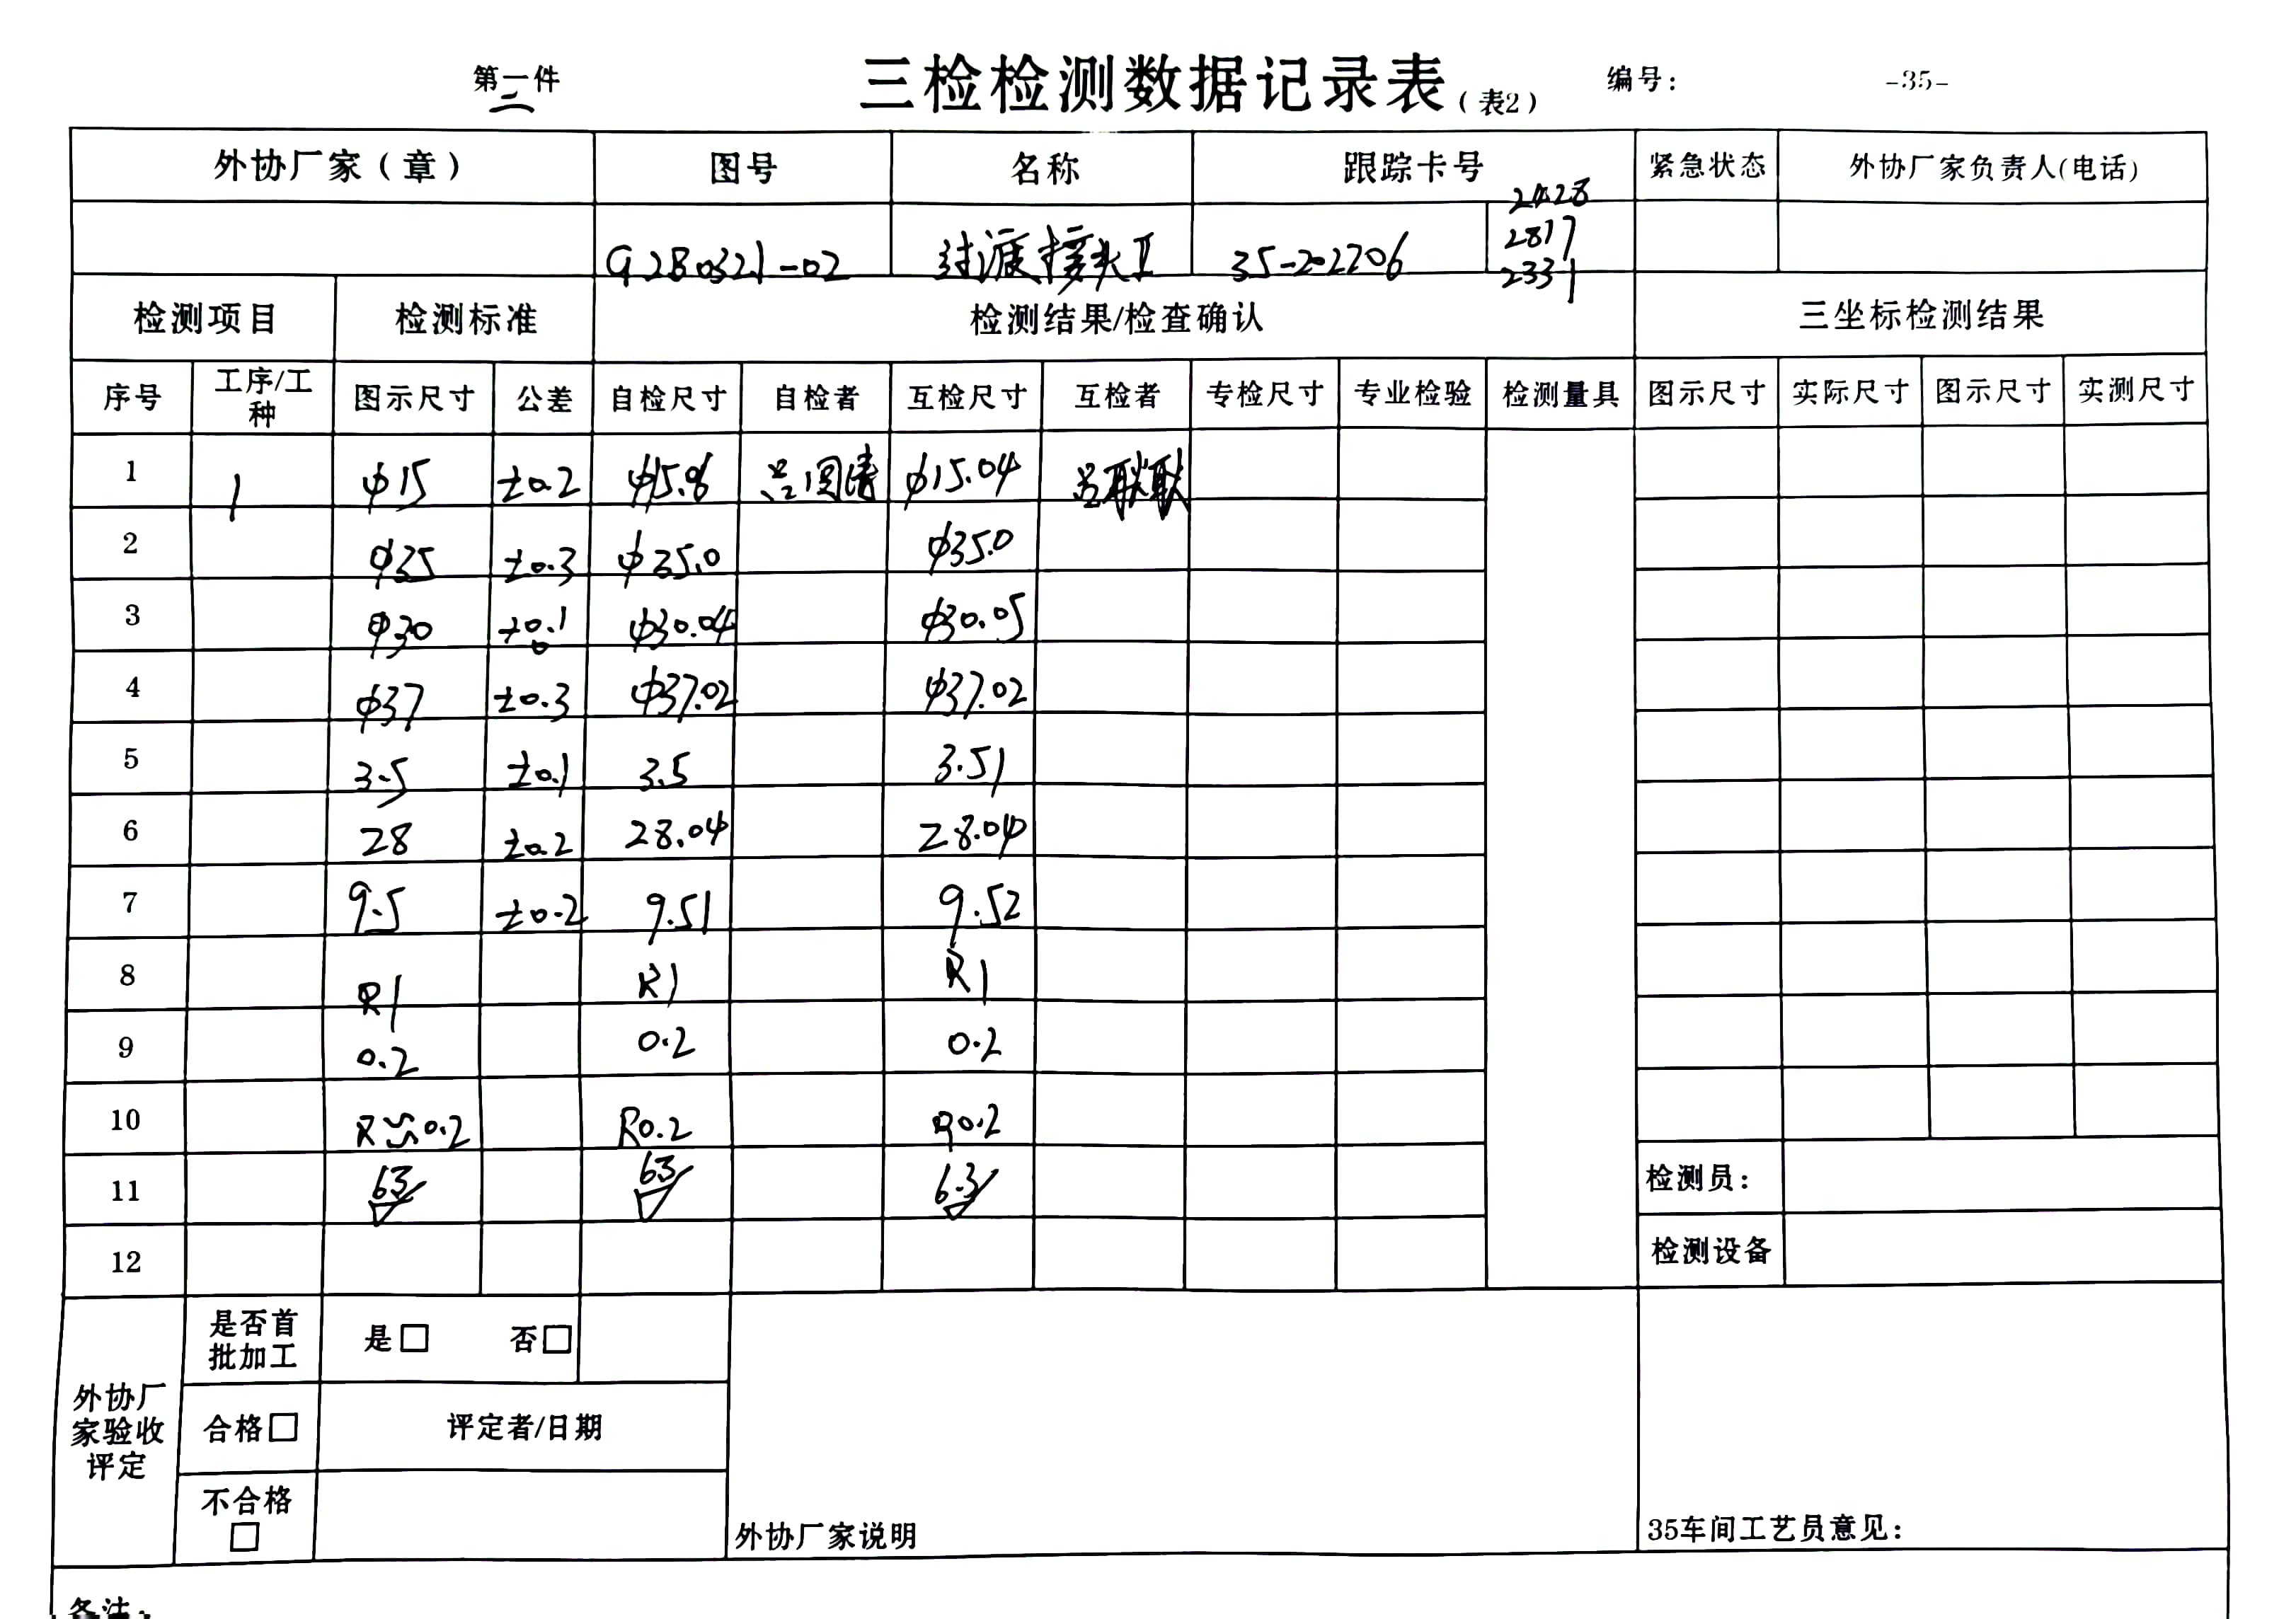 第一件 三检检测数据记录表（表2） 编号: -35-
二
外协厂家（章） 图号 名称 跟踪卡号 紧急状态 外协厂家负责人(电话)
G280321-02 过渡接头Ⅱ 35-202206
2428
2817
2331
检测项目 检测标准 检测结果/检查确认 三坐标检测结果
序号 工序/工种 图示尺寸 公差 自检尺寸 自检者 互检尺寸 互检者 专检尺寸 专业检验 检测量具 图示尺寸 实际尺寸 图示尺寸 实测尺寸
1 1 φ15 ±0.2 φ15.04 吕联联
2 φ35 ±0.3 φ35.0 φ35.0
3 φ30 +0.1 0 φ30.04 φ30.05
4 φ37 ±0.3 φ37.02 φ37.02
5 3.5 ±0.1 3.5 3.51
6 28 ±0.2 28.04 28.04
7 9.5 ±0.2 9.51 9.52
8 R1 R1 R1
9 0.2 0.2 0.2
10 R≈0.2 R0.2 R0.2
11 63 63 6.3 检测员:
12 检测设备
外协厂家验收评定
是否首批加工 是□ 否□
合格□ 评定者/日期
不合格□
外协厂家说明 35车间工艺员意见:
备注: